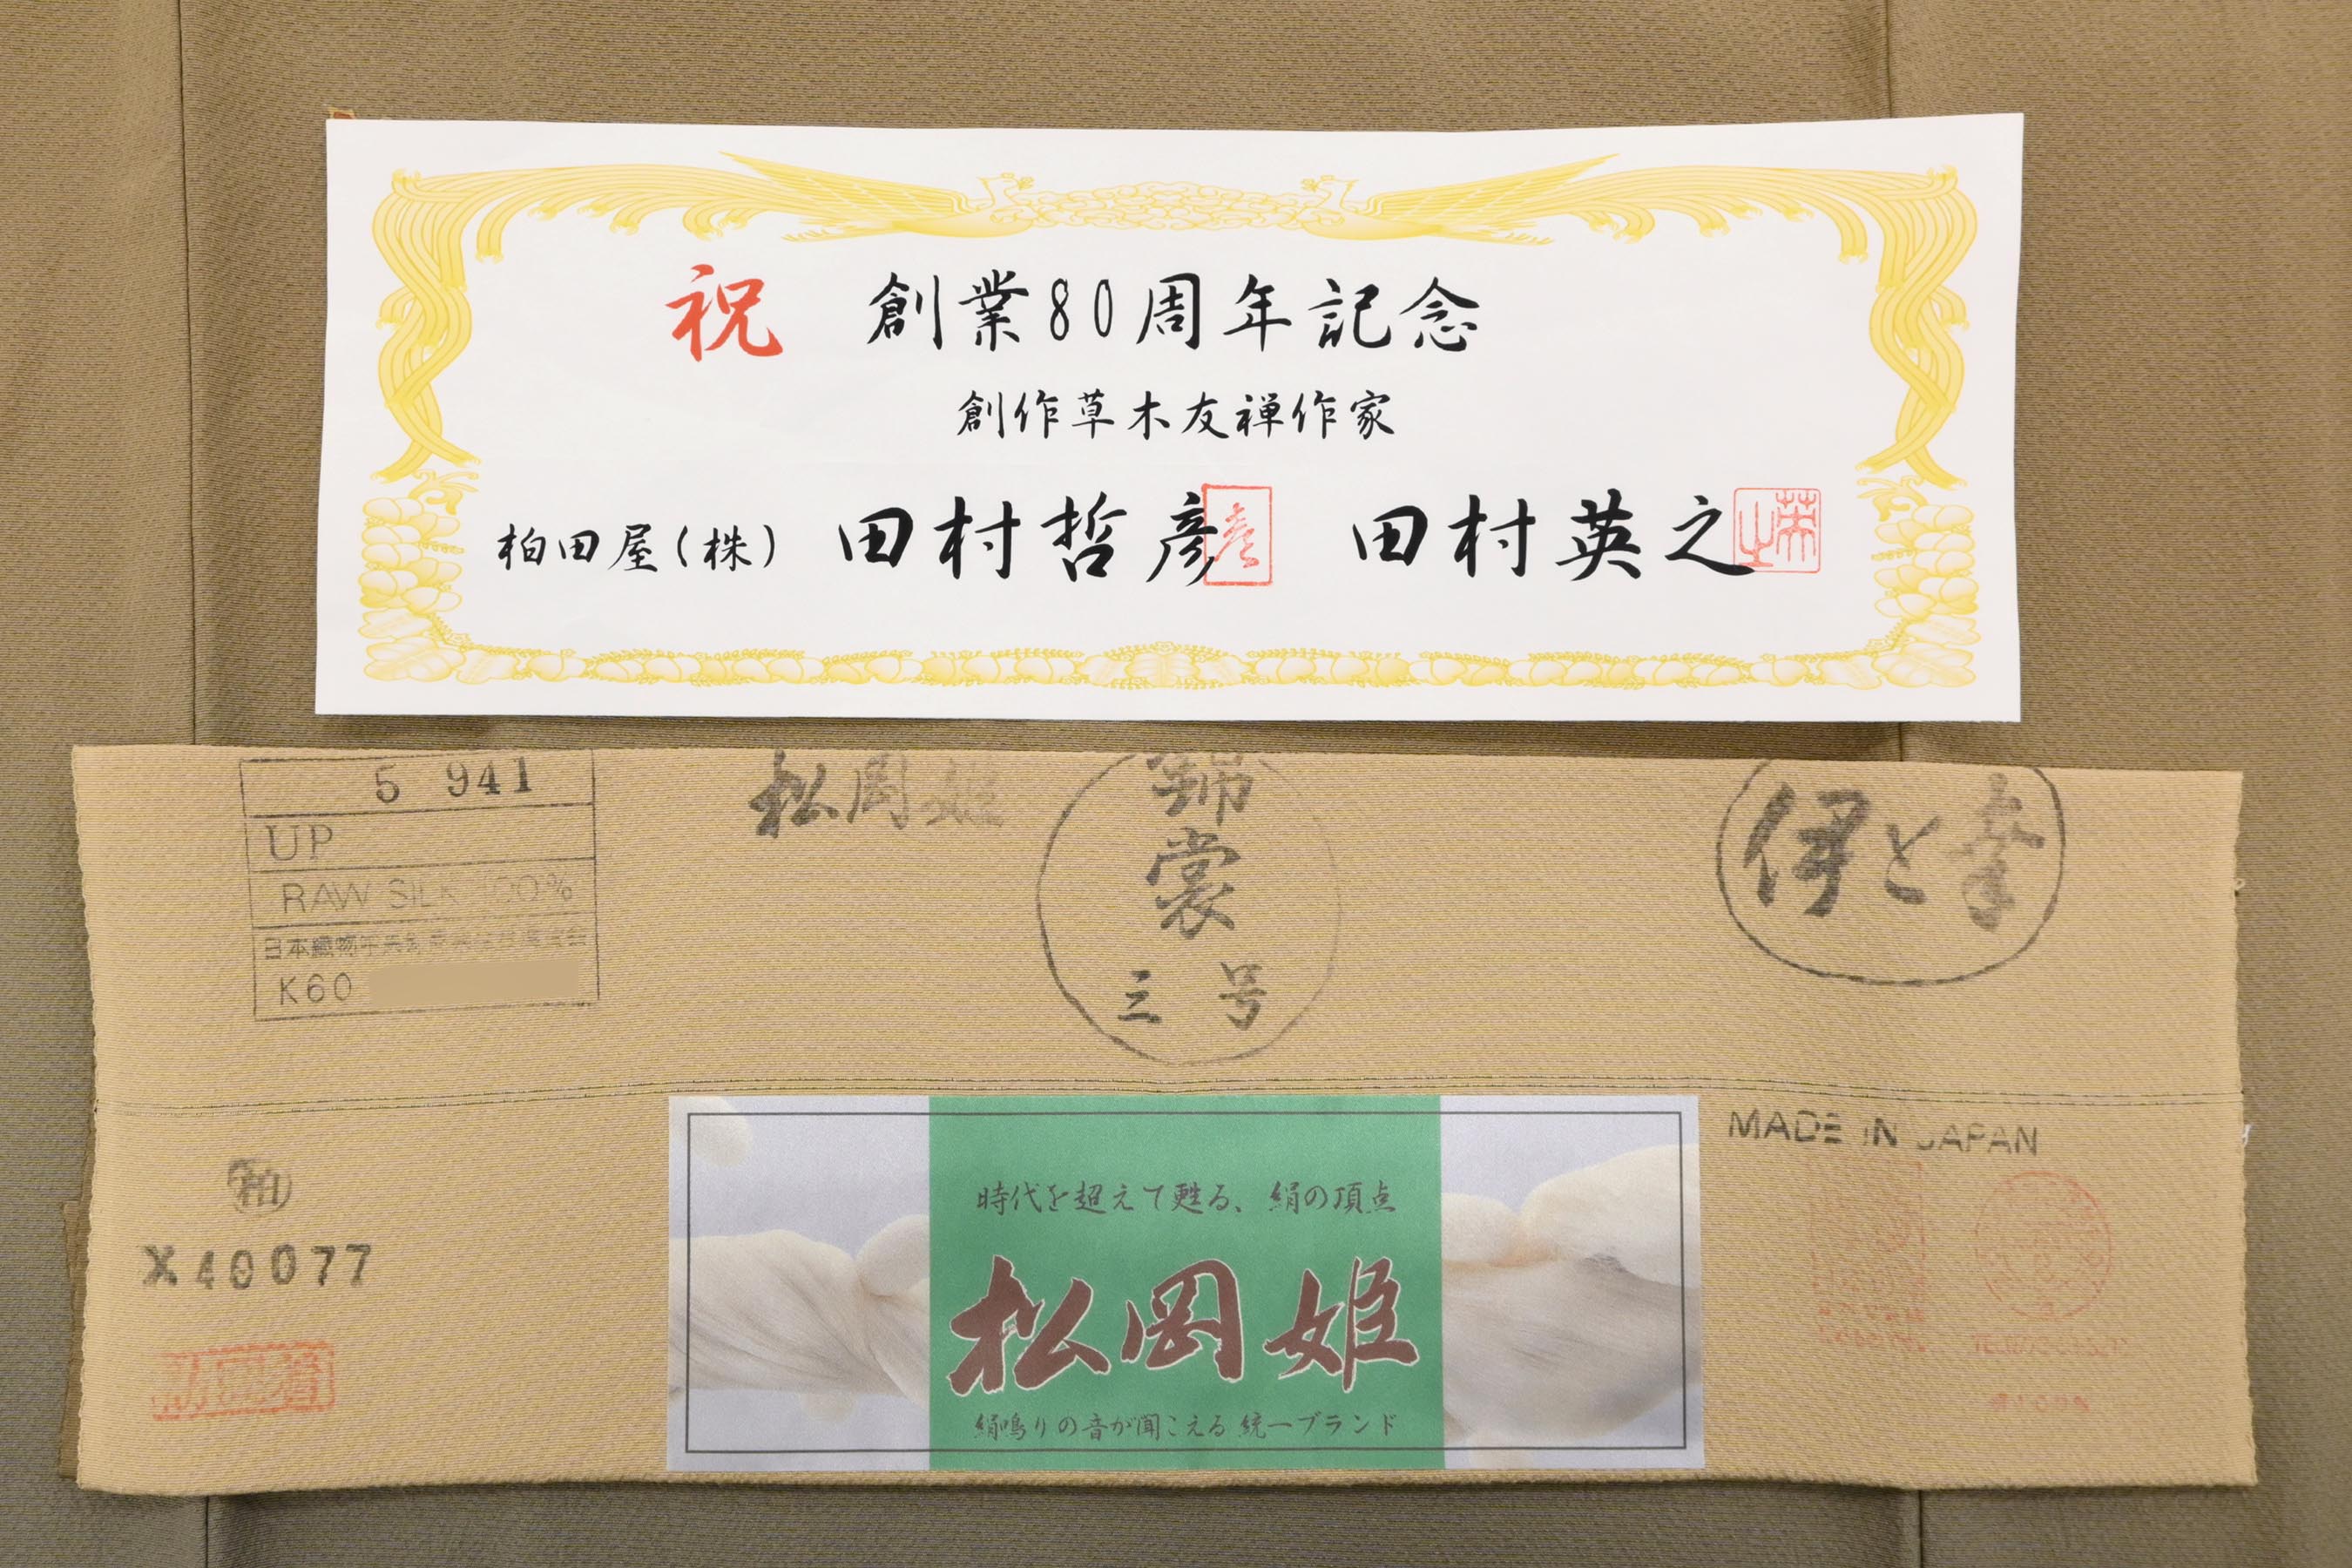 祝 創業80周年記念
創作草木友禅作家
柏田屋(株) 田村哲彦 田村英之
彦
英之
5 941
UP
RAW SILK
K60
松岡姫
錦
裳
三号
伊と幸
柏
X40077
時代を超えて甦る、絹の頂点
松岡姫
絹鳴りの音が聞こえる統一ブランド
MADE IN JAPAN